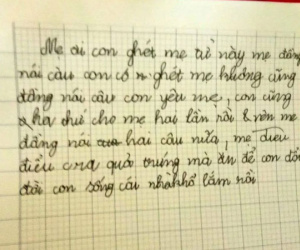 Mẹ ơi con ghét mẹ từ này mẹ đừng
nói câu con có n ghét mẹ huống cũng
đừng nói câu con yêu mẹ, con cũng
tha thứ cho mẹ hai lần rồi & nên mẹ
đừng nói hai câu nữa, mẹ
điều cra quả trứng mà ăn để con đổi
đời con sống cái nhà khổ lắm rồi